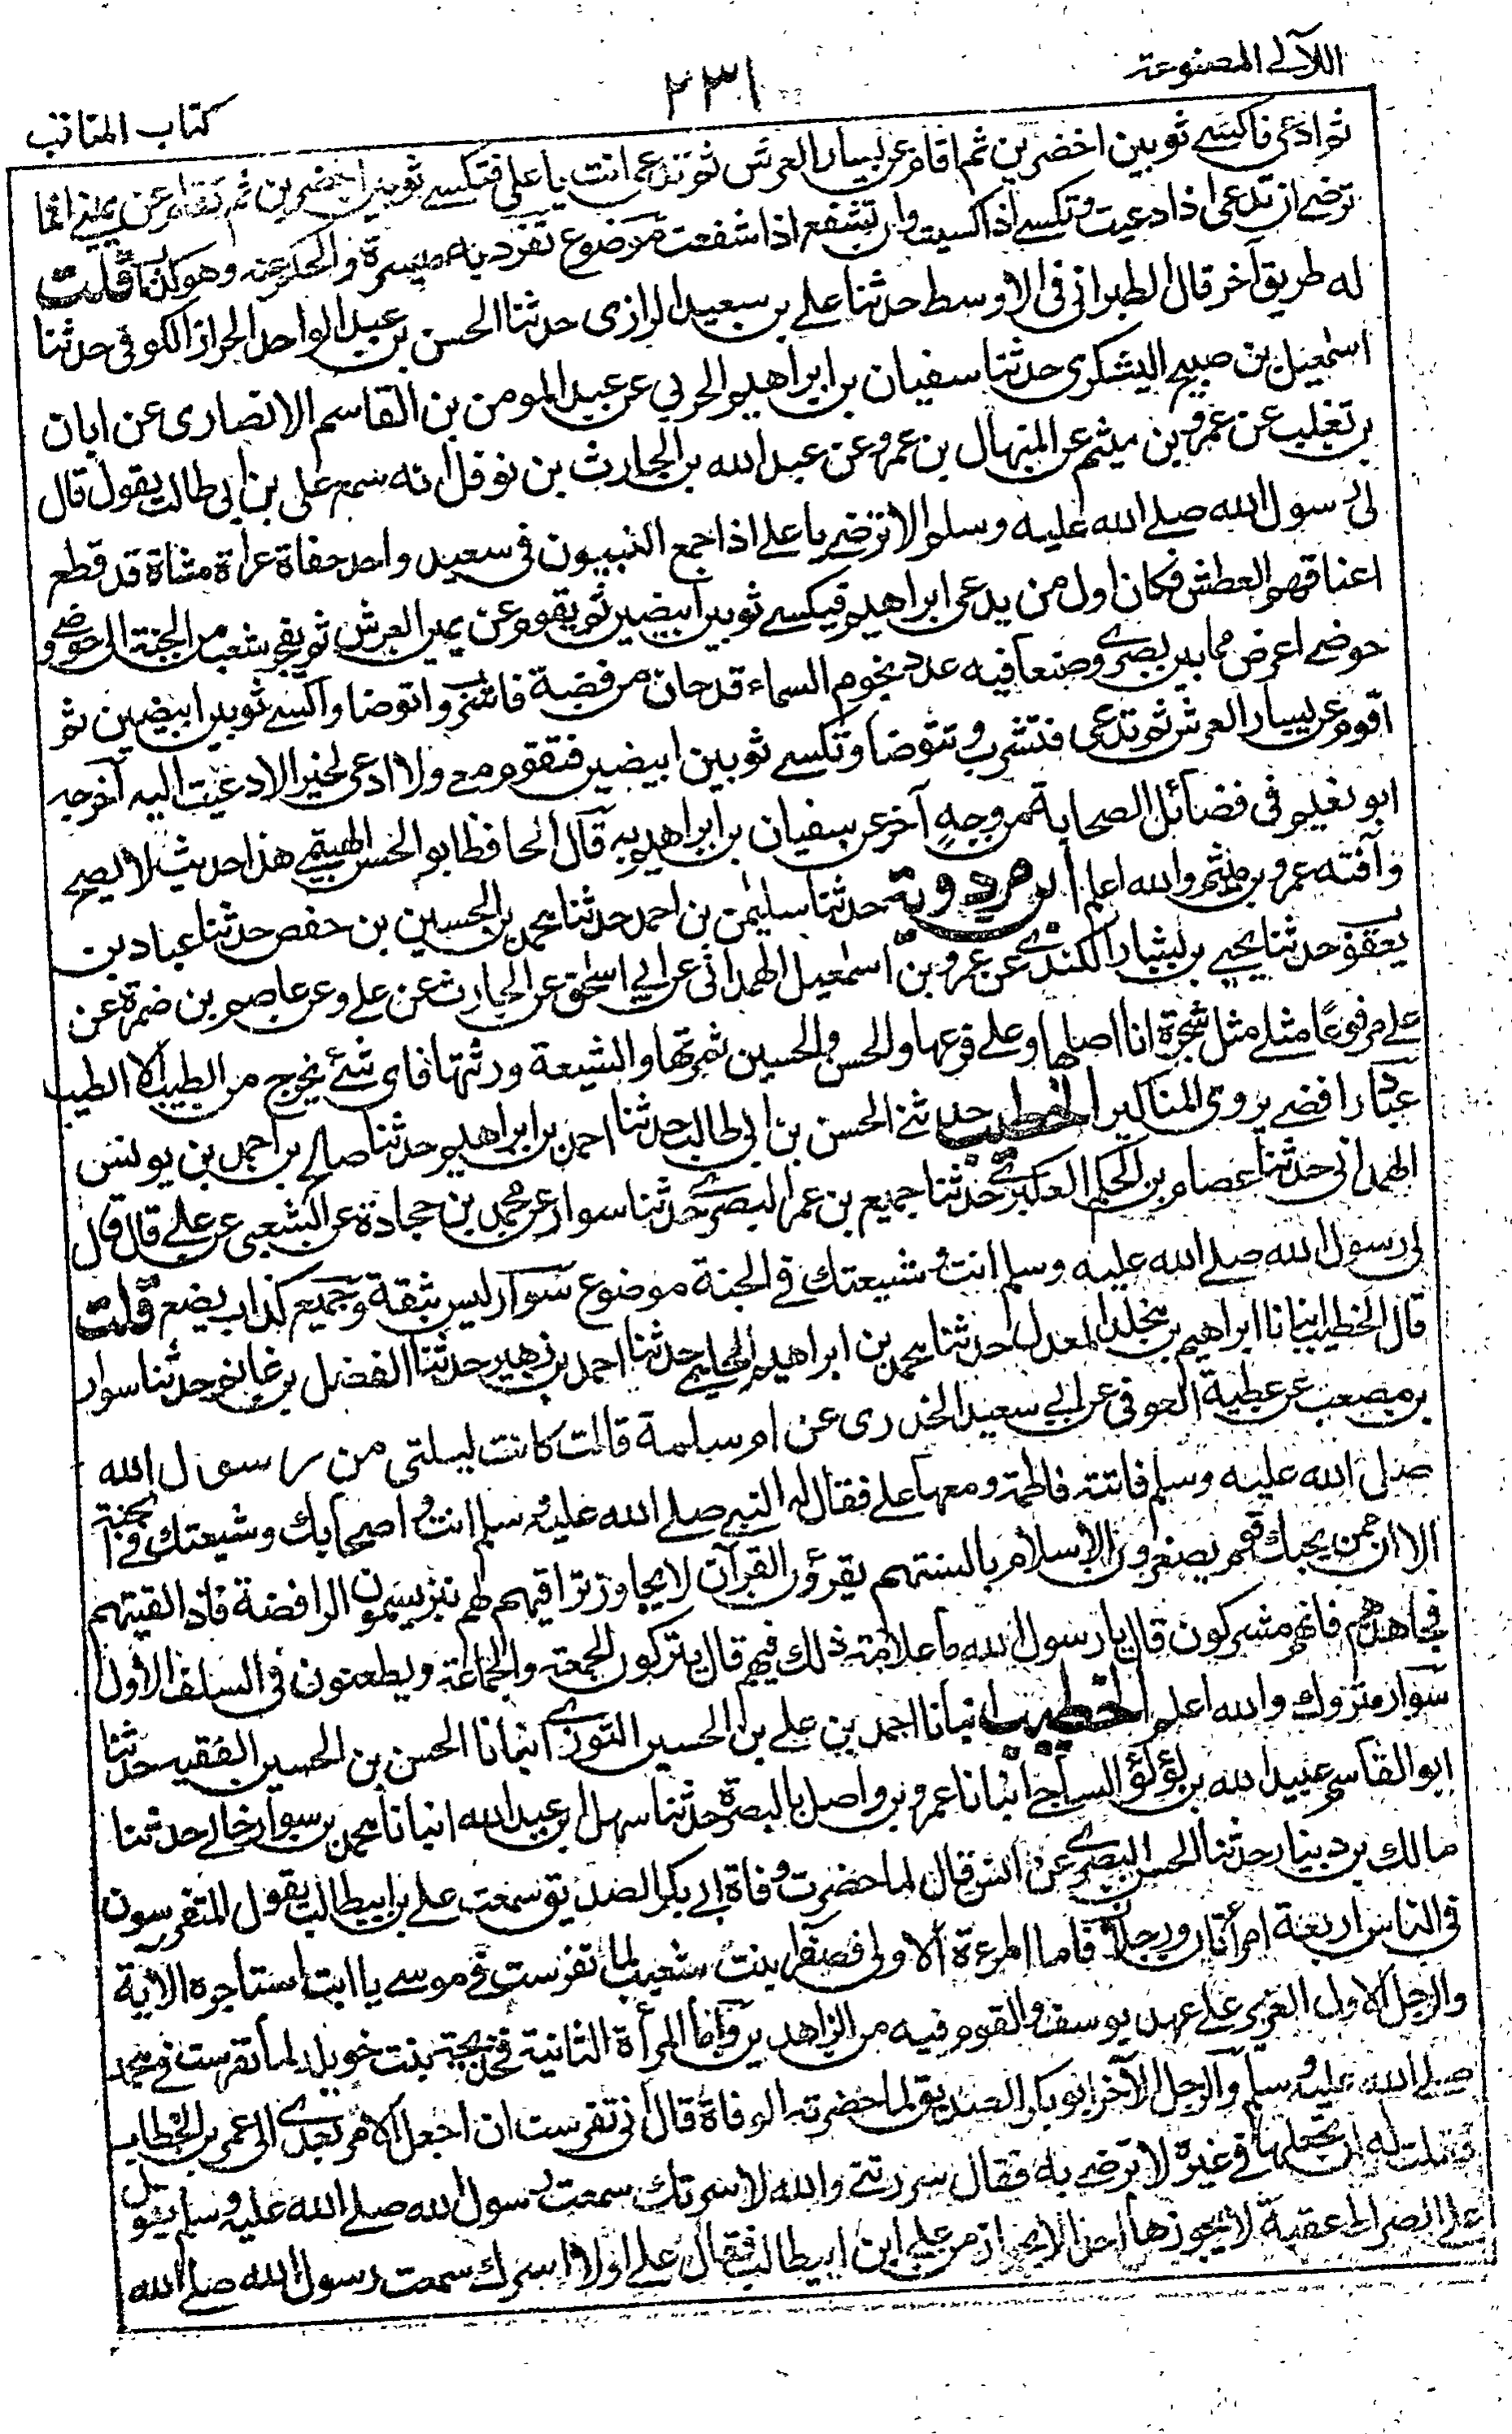 اللآلے المصنوعة
٢٣١
كتاب المناقب
ثم ادعى فاكسے ثوبين اخضرين ثم اقام عن يسار العرش ثم تدعى انت يا على فتكسے ثوبين اخضرين ثم تقام عن يمينے افما
ترضے ان تدعى اذا دعيت وتكسے اذا كسيت وان تشفع اذا شفعت موضوع تفرد به ميسرة والحكم عنه وهو كذاب قلت
له طريق آخر قال الطبرانى فى الاوسط حدثنا علے بن سعيد الرازى حدثنا الحسن بن عبد الواحد الحراز الكوفى حدثنا
اسمٰعيل بن صبيح اليشكرى حدثنا سفيان بن ابراهيم الحربي عن عبد المومن بن القاسم الانصارى عن ابان
بن تغلب عن عمرو بن ميثم عن المنهال بن عمرو عن عبد الله بن الحارث بن نوفل انه سمع على بن ابى طالب يقول قال
لى رسول الله صلے الله عليه وسلم الا ترضے يا علے اذا جمع النبيون فى سعيد واحد حفاة عراة مشاة قد قطع
اعناقهم العطش فكان اول من يدعى ابراهيم فيكسے ثوبين ابيضين ثم يقوم عن يمين العرش ثم يفجر شعب من الجنة الى حوضے و
حوضے اعرض مما بين بصرى وصنعا فيه عدد نجوم السماء قدحان من فضة فاشرب واتوضا واكسے ثوبين ابيضين ثم
اقوم عن يسار العرش ثم تدعى فتشرب و تتوضا وتكسے ثوبين ابيضين فتقوم معے ولا ادعى لخير الا دعيت اليه آخرجه
ابو نعيم فى فضائل الصحابة من وجهٍ آخر عن سفيان بن ابراهيم به قال الحافظ ابو الحسن الهيثمے هذا حديث لا يصح
وآفته عمرو بن ميثم والله اعلم ابن مردوية حدثنا سليمٰن بن احمد حدثنا محمد بن الحسين بن حفص حدثنا عباد بن
يعقوب حدثنا يحيى بن بشار الكندى عن عمرو بن اسمٰعيل الهمدانى عن ابي اسحٰق عن الحارث عن علے وعن عاصم بن ضمرة عن
علے مرفوعًا مثلے مثل شجرة انا اصلها وعلے فرعها والحسن والحسين ثمرتها والشيعة ورثتها فاى شئے يخرج من الطيب الا الطيب
عباد رافضے يروى المناكير الخطيب حدثنے الحسن بن ابى طالب حدثنا احمد بن ابراهيم حدثنا صالح بن احمد بن يونس
الهمدانى حدثنا عصام بن الحكم العكبرى حدثنا جميع بن عمر البصرى حدثنا سوار عن محمد بن جحادة عن الشعبى عن علے قال قال
لى رسول الله صلے الله عليه وسلم انت وشيعتك فى الجنة موضوع سوار ليس بثقة وجميع كذاب يضع قلت
قال الخطيب انبانا ابراهيم بن مخلد المعدل حدثنا محمد بن ابراهيم الحليمے حدثنا احمد بن زهير حدثنا الفضل بن غانم حدثنا سوار
بن مصعب عن عطية العوفى عن ابي سعيد الخدرى عن ام سلمة قالت كانت ليلتى من رسول الله
صلى الله عليه وسلم فاتته فاطمة ومعها علے فقال له النبے صلے الله عليه وسلم انت واصحابك وشيعتك فى الجنة
الا ان ممن يحبك قوم يصغرون الاسلام بالسنتهم يقرؤن القرآن لا يجاوز تراقيهم لهم نبز يسمون الرافضة فاذا لقيتهم
فجاهدهم فانهم مشركون قال يا رسول الله ما علامة ذلك فيهم قال يتركون الجمعة والجماعة ويطعنون فى السلف الاول
سوار متروك والله اعلم الخطيب انبانا احمد بن علے بن الحسين التوزى انبانا الحسن بن الحسين الفقيه حدثنا
ابو القاسم عبيد الله بن لؤلؤ الساجى انبانا عمرو بن واصل بالبصرة حدثنا سهل بن عبد الله انبانا محمد بن سوار خالے حدثنا
مالك بن دينار حدثنا الحسن البصرى عن انس قال لما حضرت وفاة ابى بكر الصديق سمعت على بن ابيطالب يقول المتفرسون
فى الناس اربعة امرأتان ورجلان فاما المرءة الاولى فصفرا بنت شعيب لما تفرست فى موسے يا ابت استاجره الاية
والرجل الاول العزيز على عهد يوسف والقوم فيه من الزاهدين واما المرأة الثانية فخديجة بنت خويلد لما تفرست فى محمد
صلے الله عليه وسلم والرجل الآخر ابو بكر الصديق لما حضرته الوفاة قال انى تفرست ان اجعل الامر بعدى الى عمر بن الخطاب
فقلت له ان تجعلها فى غيره لا نرضے به فقال سررتنے والله لاسرتك سمعت رسول الله صلے الله عليه وسلم يقول
على الصراط عقبة لا يجوزها احد الا بجواز من علے ابن ابيطالب فقال علے اولا اسرك سمعت رسول الله صلے الله